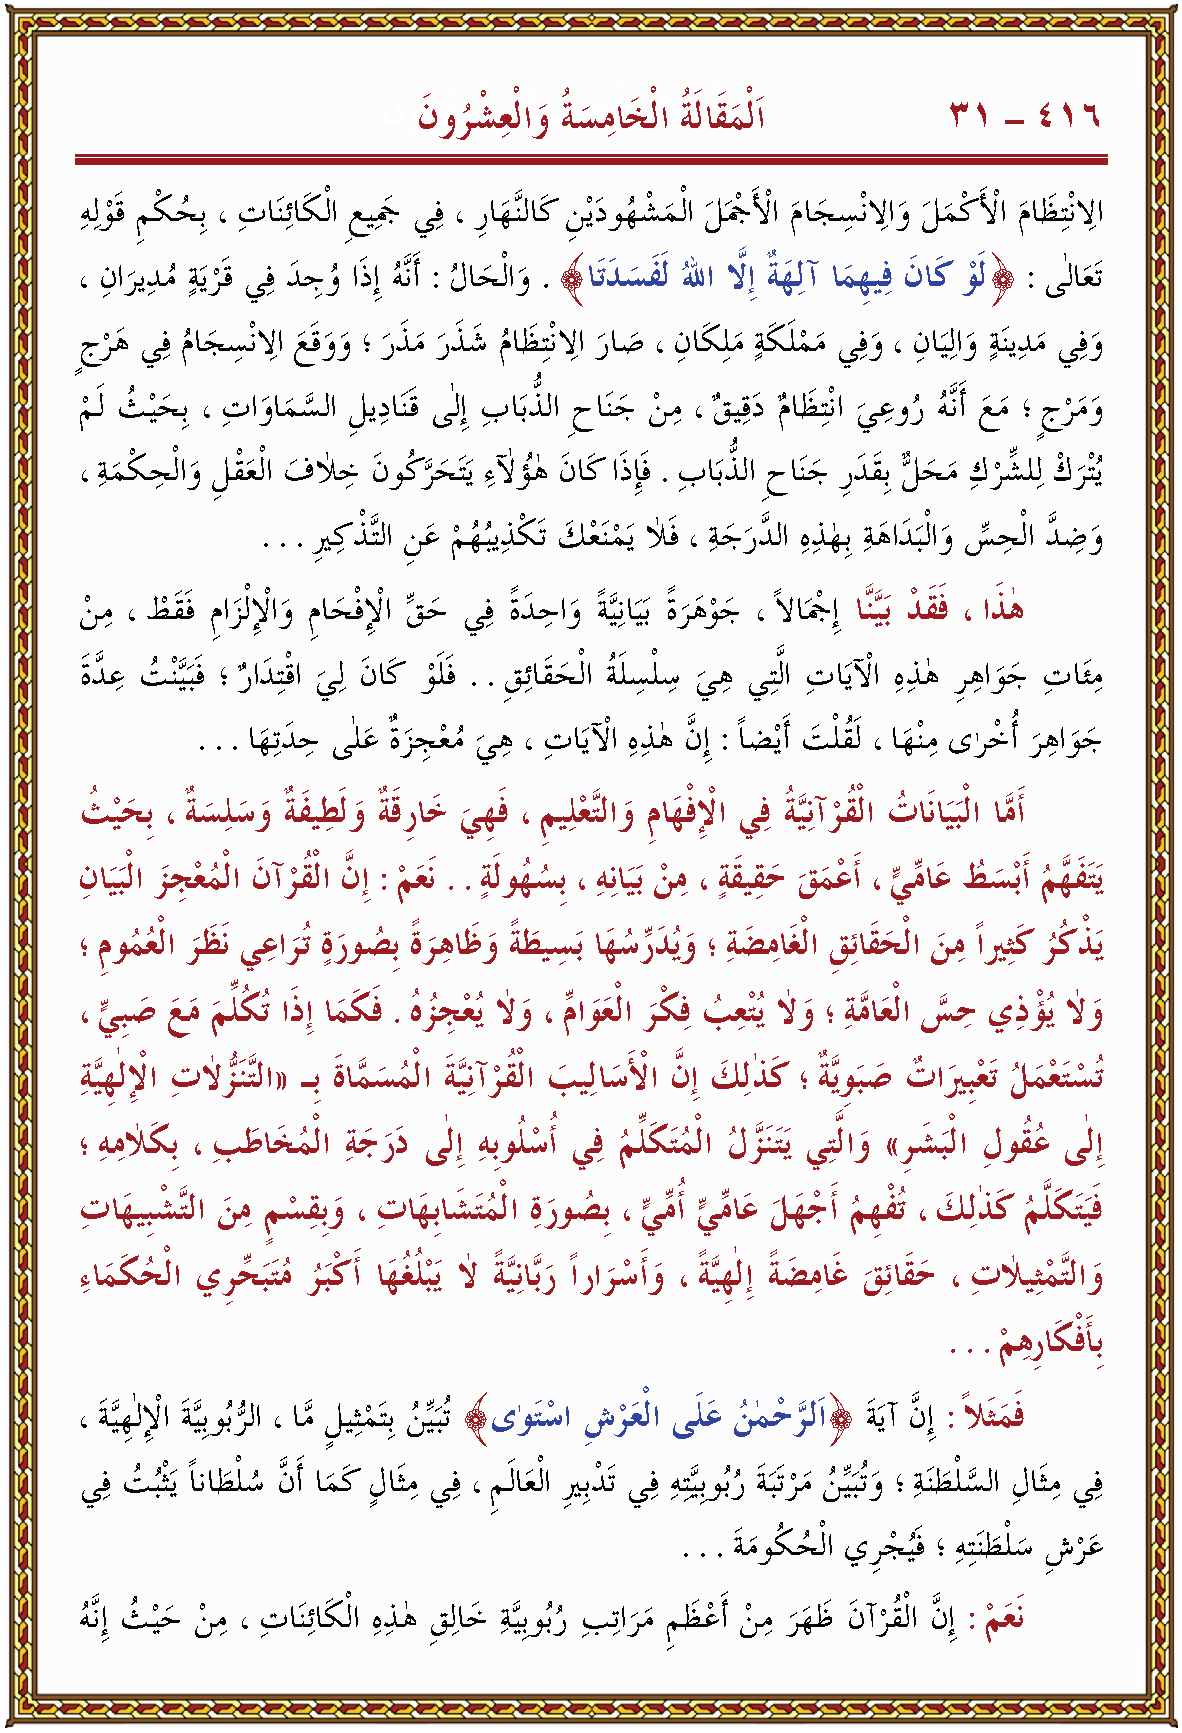 ٤١٦ – ٣١ اَلْمَقَالَةُ الْخَامِسَةُ وَالْعِشْرُونَ
الِانْتِظَامَ الْأَكْمَلَ وَالِانْسِجَامَ الْأَجْمَلَ الْمَشْهُودَيْنِ كَالنَّهَارِ ، فِي جَمِيعِ الْكَائِنَاتِ ، بِحُكْمِ قَوْلِهِ
تَعَالٰى : ﴿لَوْ كَانَ فِيهِمَا آلِهَةٌ إِلَّا اللهُ لَفَسَدَتَا﴾ . وَالْحَالُ : أَنَّهُ إِذَا وُجِدَ فِي قَرْيَةٍ مُدِيرَانِ ،
وَفِي مَدِينَةٍ وَالِيَانِ ، وَفِي مَمْلَكَةٍ مَلِكَانِ ، صَارَ الِانْتِظَامُ شَذَرَ مَذَرَ ؛ وَوَقَعَ الِانْسِجَامُ فِي هَرْجٍ
وَمَرْجٍ ؛ مَعَ أَنَّهُ رُوعِيَ انْتِظَامٌ دَقِيقٌ ، مِنْ جَنَاحِ الذُّبَابِ إِلٰى قَنَادِيلِ السَّمَاوَاتِ ، بِحَيْثُ لَمْ
يُتْرَكْ لِلشِّرْكِ مَحَلٌّ بِقَدَرِ جَنَاحِ الذُّبَابِ . فَإِذَا كَانَ هٰؤُلَآءِ يَتَحَرَّكُونَ خِلَافَ الْعَقْلِ وَالْحِكْمَةِ ،
وَضِدَّ الْحِسِّ وَالْبَدَاهَةِ بِهٰذِهِ الدَّرَجَةِ ، فَلَا يَمْنَعْكَ تَكْذِيبُهُمْ عَنِ التَّذْكِيرِ . . .
هٰذَا ، فَقَدْ بَيَّنَّا إِجْمَالاً ، جَوْهَرَةً بَيَانِيَّةً وَاحِدَةً فِي حَقِّ الْإِفْحَامِ وَالْإِلْزَامِ فَقَطْ ، مِنْ
مِئَاتِ جَوَاهِرِ هٰذِهِ الْآيَاتِ الَّتِي هِيَ سِلْسِلَةُ الْحَقَائِقِ . . فَلَوْ كَانَ لِيَ اقْتِدَارٌ ؛ فَبَيَّنْتُ عِدَّةَ
جَوَاهِرَ أُخْرٰى مِنْهَا ، لَقُلْتَ أَيْضاً : إِنَّ هٰذِهِ الْآيَاتِ ، هِيَ مُعْجِزَةٌ عَلٰى حِدَتِهَا . . .
أَمَّا الْبَيَانَاتُ الْقُرْآنِيَّةُ فِي الْإِفْهَامِ وَالتَّعْلِيمِ ، فَهِيَ خَارِقَةٌ وَلَطِيفَةٌ وَسَلِسَةٌ ، بِحَيْثُ
يَتَفَهَّمُ أَبْسَطُ عَامِّيٍّ ، أَعْمَقَ حَقِيقَةٍ ، مِنْ بَيَانِهِ ، بِسُهُولَةٍ . . نَعَمْ : إِنَّ الْقُرْآنَ الْمُعْجِزَ الْبَيَانِ
يَذْكُرُ كَثِيراً مِنَ الْحَقَائِقِ الْغَامِضَةِ ؛ وَيُدَرِّسُهَا بَسِيطَةً وَظَاهِرَةً بِصُورَةٍ تُرَاعِي نَظَرَ الْعُمُومِ ؛
وَلَا يُؤْذِي حِسَّ الْعَامَّةِ ؛ وَلَا يُتْعِبُ فِكْرَ الْعَوَامِّ ، وَلَا يُعْجِزُهُ . فَكَمَا إِذَا تُكُلِّمَ مَعَ صَبِيٍّ ،
تُسْتَعْمَلُ تَعْبِيرَاتٌ صَبَوِيَّةٌ ؛ كَذٰلِكَ إِنَّ الْأَسَالِيبَ الْقُرْآنِيَّةَ الْمُسَمَّاةَ بِـ «التَّنَزُّلَاتِ الْإِلٰهِيَّةِ
إِلٰى عُقُولِ الْبَشَرِ» وَالَّتِي يَتَنَزَّلُ الْمُتَكَلِّمُ فِي أُسْلُوبِهِ إِلٰى دَرَجَةِ الْمُخَاطَبِ ، بِكَلَامِهِ ؛
فَيَتَكَلَّمُ كَذٰلِكَ ، تُفْهِمُ أَجْهَلَ عَامِّيٍّ أُمِّيٍّ ، بِصُورَةِ الْمُتَشَابِهَاتِ ، وَبِقِسْمٍ مِنَ التَّشْبِيهَاتِ
وَالتَّمْثِيلَاتِ ، حَقَائِقَ غَامِضَةً إِلٰهِيَّةً ، وَأَسْرَاراً رَبَّانِيَّةً لَا يَبْلُغُهَا أَكْبَرُ مُتَبَحِّرِي الْحُكَمَاءِ
بِأَفْكَارِهِمْ . . .
فَمَثَلاً : إِنَّ آيَةَ ﴿اَلرَّحْمٰنُ عَلَى الْعَرْشِ اسْتَوٰى﴾ تُبَيِّنُ بِتَمْثِيلٍ مَّا ، الرُّبُوبِيَّةَ الْإِلٰهِيَّةَ ،
فِي مِثَالِ السَّلْطَنَةِ ؛ وَتُبَيِّنُ مَرْتَبَةَ رُبُوبِيَّتِهِ فِي تَدْبِيرِ الْعَالَمِ ، فِي مِثَالٍ كَمَا أَنَّ سُلْطَاناً يَثْبُتُ فِي
عَرْشِ سَلْطَنَتِهِ ؛ فَيُجْرِي الْحُكُومَةَ . . .
نَعَمْ : إِنَّ الْقُرْآنَ ظَهَرَ مِنْ أَعْظَمِ مَرَاتِبِ رُبُوبِيَّةِ خَالِقِ هٰذِهِ الْكَائِنَاتِ ، مِنْ حَيْثُ إِنَّهُ